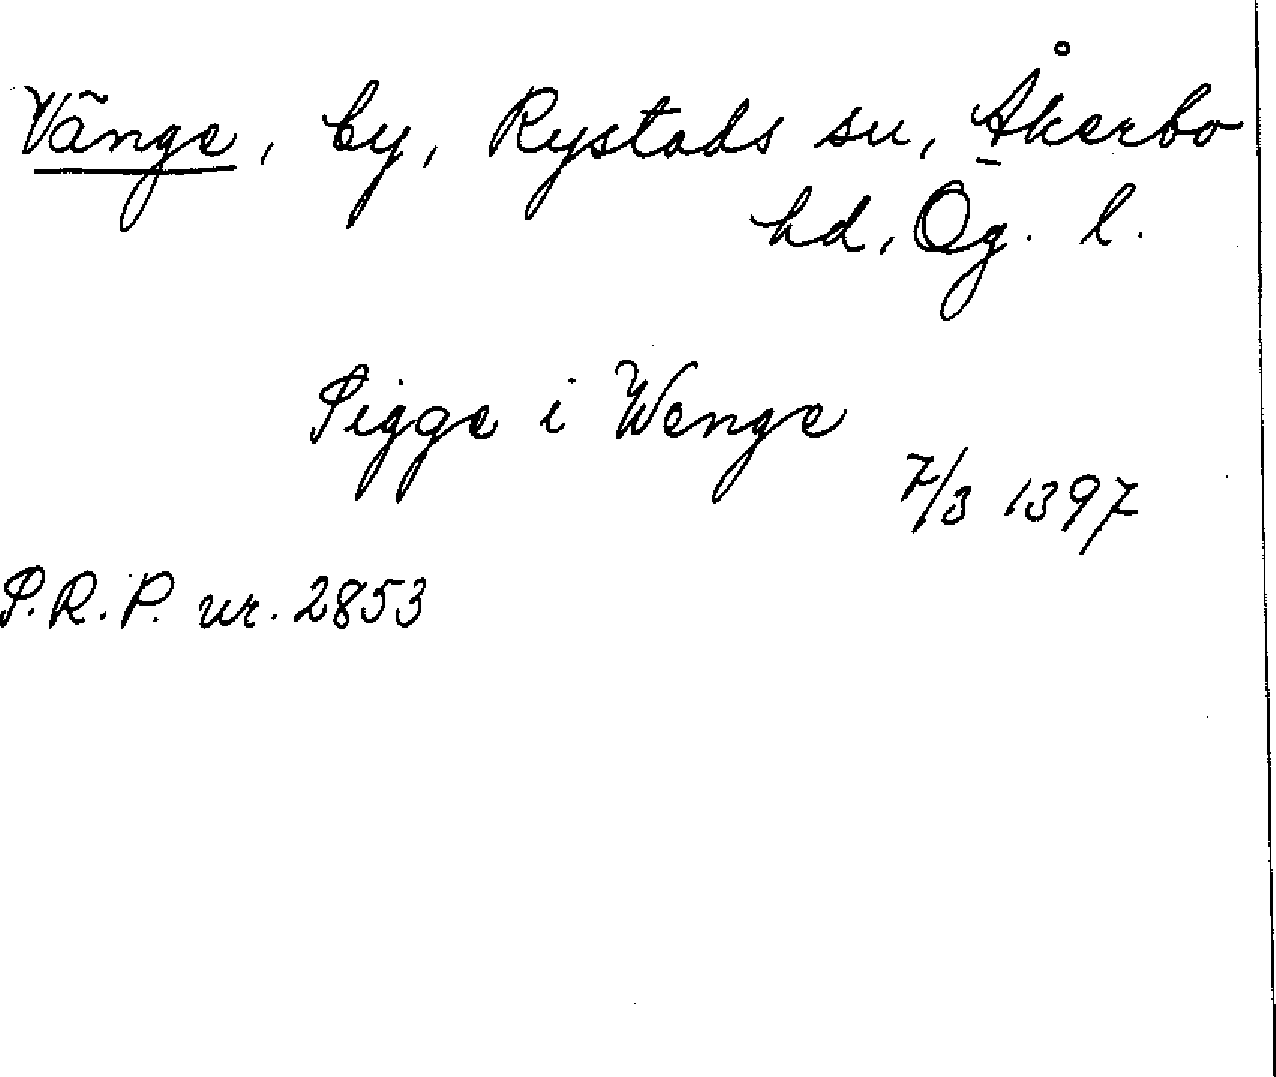 Vänge, by, Rystads sn, Åkerbo
hd, Ög. l.
Sigge i Wenge
7/3 1397
S.R.P. nr. 2853